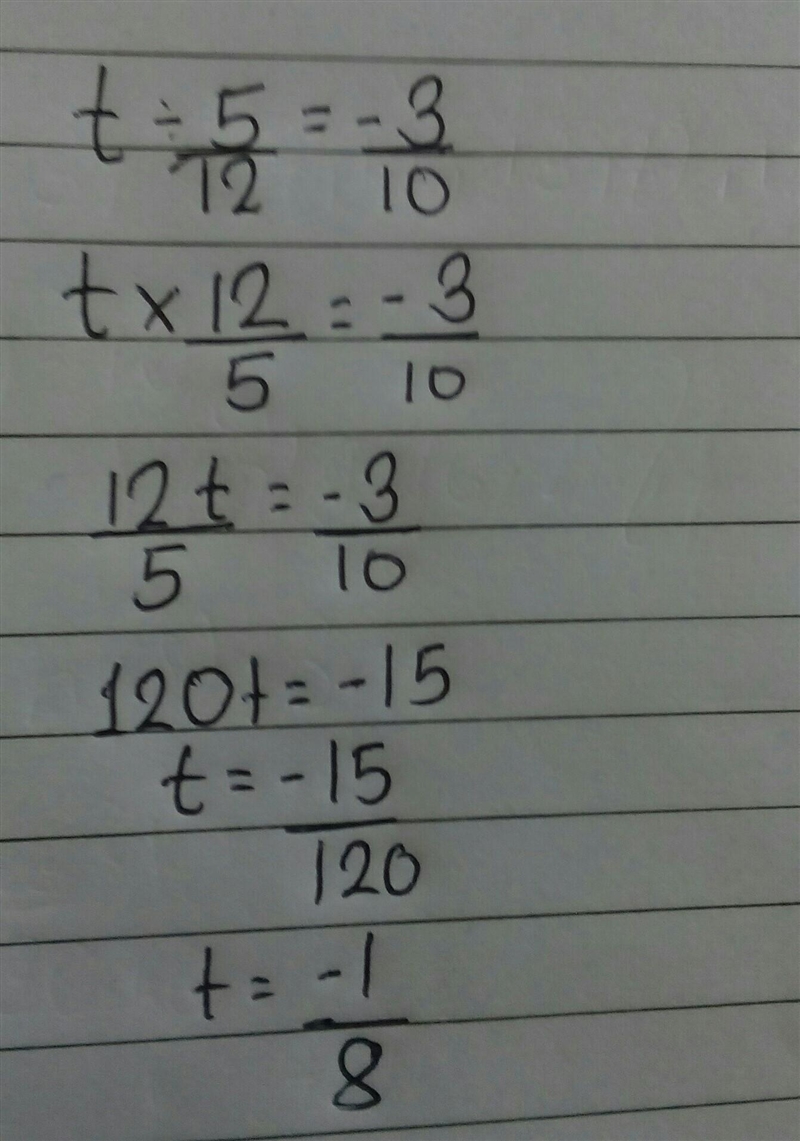 t ÷ 5/12 = -3/10
t × 12/5 = -3/10
12t/5 = -3/10
120t = -15
t = -15/120
t = -1/8